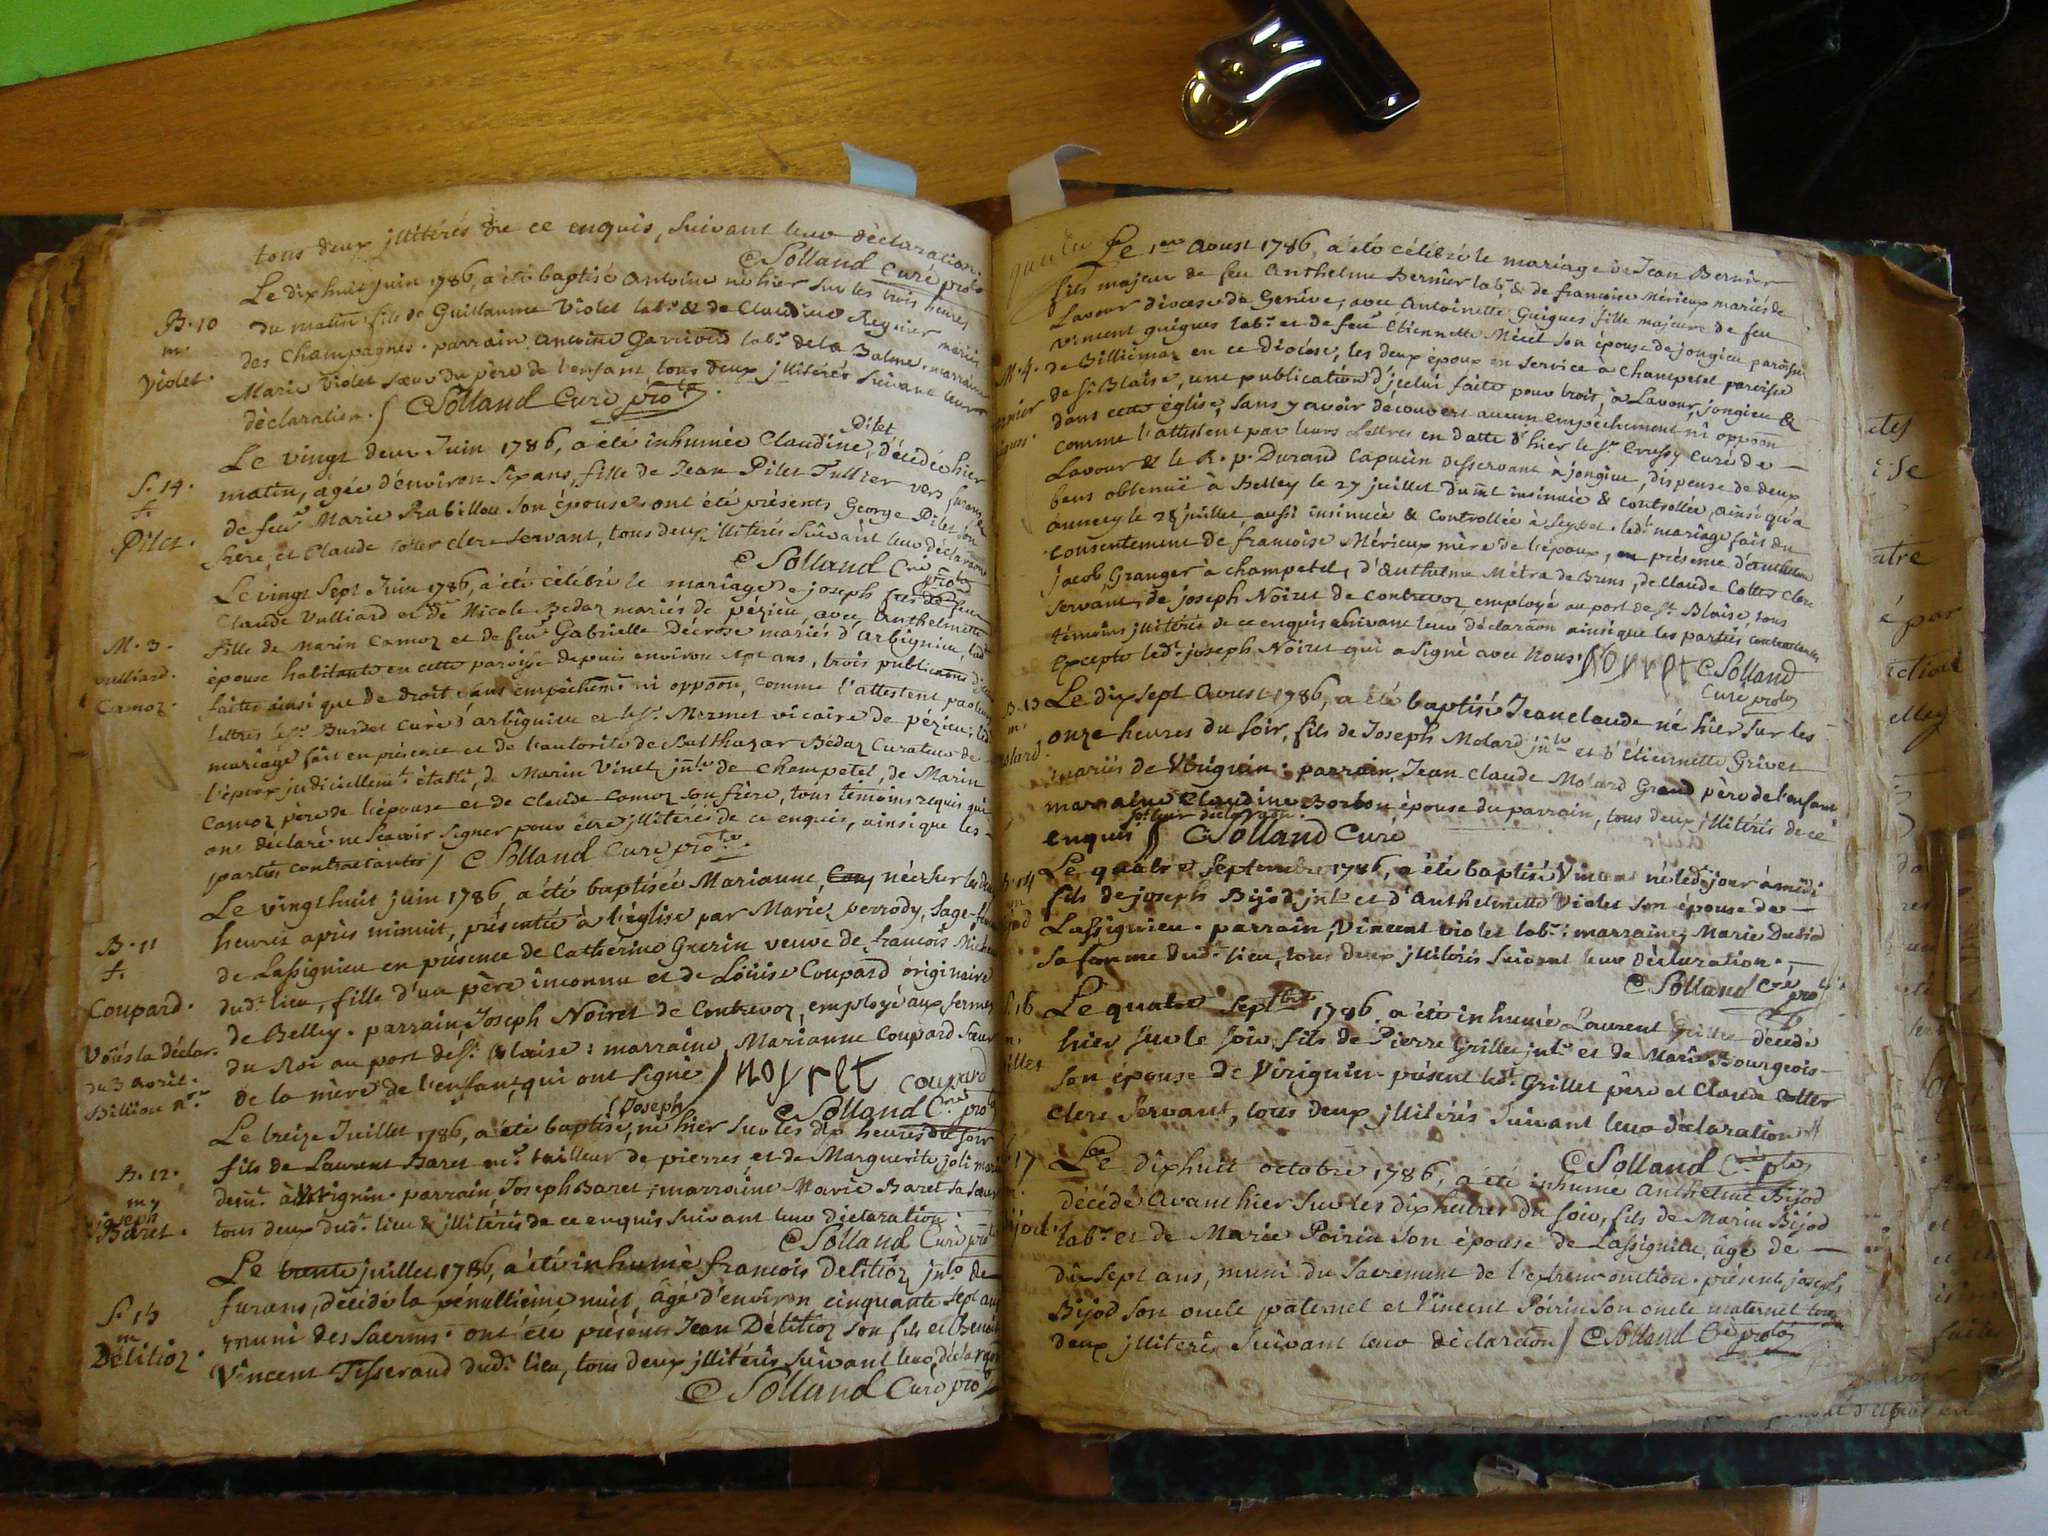 tous deux jllitérés de ce enquis, suivant leur déclaration.
CSolland Curé pro.te
Le dixhuit juin 1786, a été baptisé Antoine né hier sur les trois heures
B. 10
m.
Violet.
du matin fils de Guillaume Violet lab.r & de Claudine Regnier mariés
des Champagnes. parrain Antoine lab.r de la Balme. marraine
Marie Violet sœur du père de l'enfant tous deux jllitérés suivant leur
déclaration. CSolland Curé pro.te
Pilet
Le vingt deux Juin 1786, a été inhumée Claudine, décédée hier
S. 14.
f.
Pilet.
matin, agée d'environ six ans, fille de Jean Pilet Tullier vers furans, &
de feu Marie Rabillou son épouse, ont été présents George Pilet son
frère, et Claude Cotter clerc servant, tous deux illitérés suivant leur déclaraon
CSolland C.ré pro.te
Le vingt sept Juin 1786, a été célébré le mariage de joseph fils de feu
Claude Vulliard et de Nicole Bedaz mariés de pézieu, avec Anthelmette
M. 3.
vulliard.
Camoz.
fille de Marin Camoz et de feu Gabrielle Décrose mariés d'arbignieu, lad.
épouse habitante en cette paroisse depuis environ sept ans, trois publicaons
faites ainsi que de droit sans empêchem.t ni oppoon, comme l'attestent par leurs
lettres le s.r Burdet curé d'arbignieu et le s.r Mermet vicaire de pézieu, led.
mariage fait en présence et de l'autorité de Balthazar Bédaz Curateur de
l'époux judiciellem.t établi, de Marin Vinet jn.lr de Champetel, de Marin
Camoz père de l'épouse et de Claude Camoz son frère, tous temoins requis qui
ont déclaré ne sçavoir signer pour être jllitérés de ce enquis, ainsi que les
parties contractantes / CSolland Curé pro.te
Le vingt huit juin 1786, a été baptisée Marianne, née sur les deux
B. 11
f.
Coupard.
heures après minuit, présentée à l'église par Marie perrody, sage-femme
de Lassignieu en présence de Catherine Guerin veuve de francois
dud. lieu, fille d'un père inconnu et de Louise Coupard originaire
de Belley. parrain, Joseph Noiret de Contrevoz, employé aux fermes
Voués la déclar.
du 3 avril.
Billion n.re
du Roi au port de S.t Blaise: marraine, Marianne Coupard sœur
de la mère de l'enfant, qui ont signé / noiret coupard
CSolland C.ré pro.te
(Joseph)
Le treize Juillet 1786, a été baptisé, né hier sur les dix heures du soir
B. 12.
m
joseph
Baret.
fils de Laurent Baret m.e tailleur de pierres et de Marguerite joli mariés
dem.t à Virignin. parrain Joseph Baret; marraine Marie Baret sa sœur
tous deux dud. lieu & jllitérés de ce enquis suivant leur déclaration.
CSolland Curé pro.te
Le trente juillet 1786, a été inhumé francois Delitioz jn.lr de
S. 15
m
Délitioz.
furans, décédé la pénultième nuit, âgé d'environ cinquante sept ans
muni des sacrem.s. ont été présents Jean Délitioz son fils et Benoit
Vincent Tisserand dud. lieu, tous deux jllitérés suivant leur déclaraon
CSolland Curé pro.te
Le 1.er Aoust 1786, a été célébré le mariage de Jean Bernier
fils majeur de feu Anthelme Bernier lab.r & de francoise Mérieux mariés de
Lavour diocese de Genève, avec Antoinette Guigues fille majeure de feu
Vincent guigues lab.r et de feu Etiennette Mécel son épouse de jongieu paroisse
M. 4.
de Billiémaz en ce diocèse, les deux époux en service à Champetel paroisse
de S.t Blaise, une publication d'jcelui faite pour trois, à Lavour, jongieu &
dans cette église, sans y avoir découvert aucun empêchement ni oppoon
comme l'attestent par leurs Lettres en datte d'hier le S.r Crussy Curé de
Lavour & le R. p. Durand Capucin desservant à jongieu, dispense de deux
bans obtenuë à Belley le 27 juillet du m.t insinuée & controllée, ainsi qu'à
annecy le 28 juillet, aussi insinuée & controllée à Seyssel. led. mariage fait du
consentement de francoise Mérieux mère de l'époux, en présence d'anthelme
jacob, Granger à champetel, d'Anthelme Métra de Brens, de Claude Cotter clerc
servant, de joseph Noiret de Contrevoz employé au port de S.t Blaise, tous
témoins jllitérés de ce enquis suivant leur déclaraon ainsi que les parties contractantes
Excepté led. joseph Noiret qui a signé avec Nous. noiret CSolland
Curé pro.te
B. 13
m.
molard.
Le dix sept Aoust 1786, a été baptisé Jean claude né hier sur les
onze heures du soir, fils de Joseph Molard jn.lr et d'Etiennette Grivet
mariés de Virignin. parrain, Jean Claude Molard Grand père de l'enfant
marraine Claudine Borbon épouse du parrain, tous deux jllitérés de ce
s.t leur déclaraon.
enquis CSolland Curé
Le quatre Septembre 1786, a été baptisé Vincent né led. jour à midi
B. 14
m
fils de joseph Bijod jn.lr et d'Anthelmette Violet son épouse de
Lassignieu. parrain, Vincent Violet lab.r: marraine, Marie
sa femme dud. lieu, tous deux jllitérés suivant leur déclaration.
CSolland C.ré pro.te
S. 16
Le quatre Sept.bre 1786, a été inhumé Laurent Grillet décédé
hier sur le soir, fils de Pierre Grillet jn.lr et de Marie Bourgeois
son épouse de Virignin. présent led. Grillet père et Claude Cotter
clerc servant, tous deux jllitérés suivant leur déclaration
CSolland C.ré p.te
17
Le dixhuit octobre 1786, a été inhumé Anthelme Bijod
décédé avanthier sur les dix heures du soir, fils de Marin Bijod
lab.r et de Marie Poirin son épouse de Lassignieu, âgé de
dix sept ans, muni du sacrement de l'extreme onction. présent, joseph
Bijod son oncle paternel et Vincent Poirin son oncle maternel tous
deux jllitérés suivant leur déclaraon / CSolland C.ré pro.te